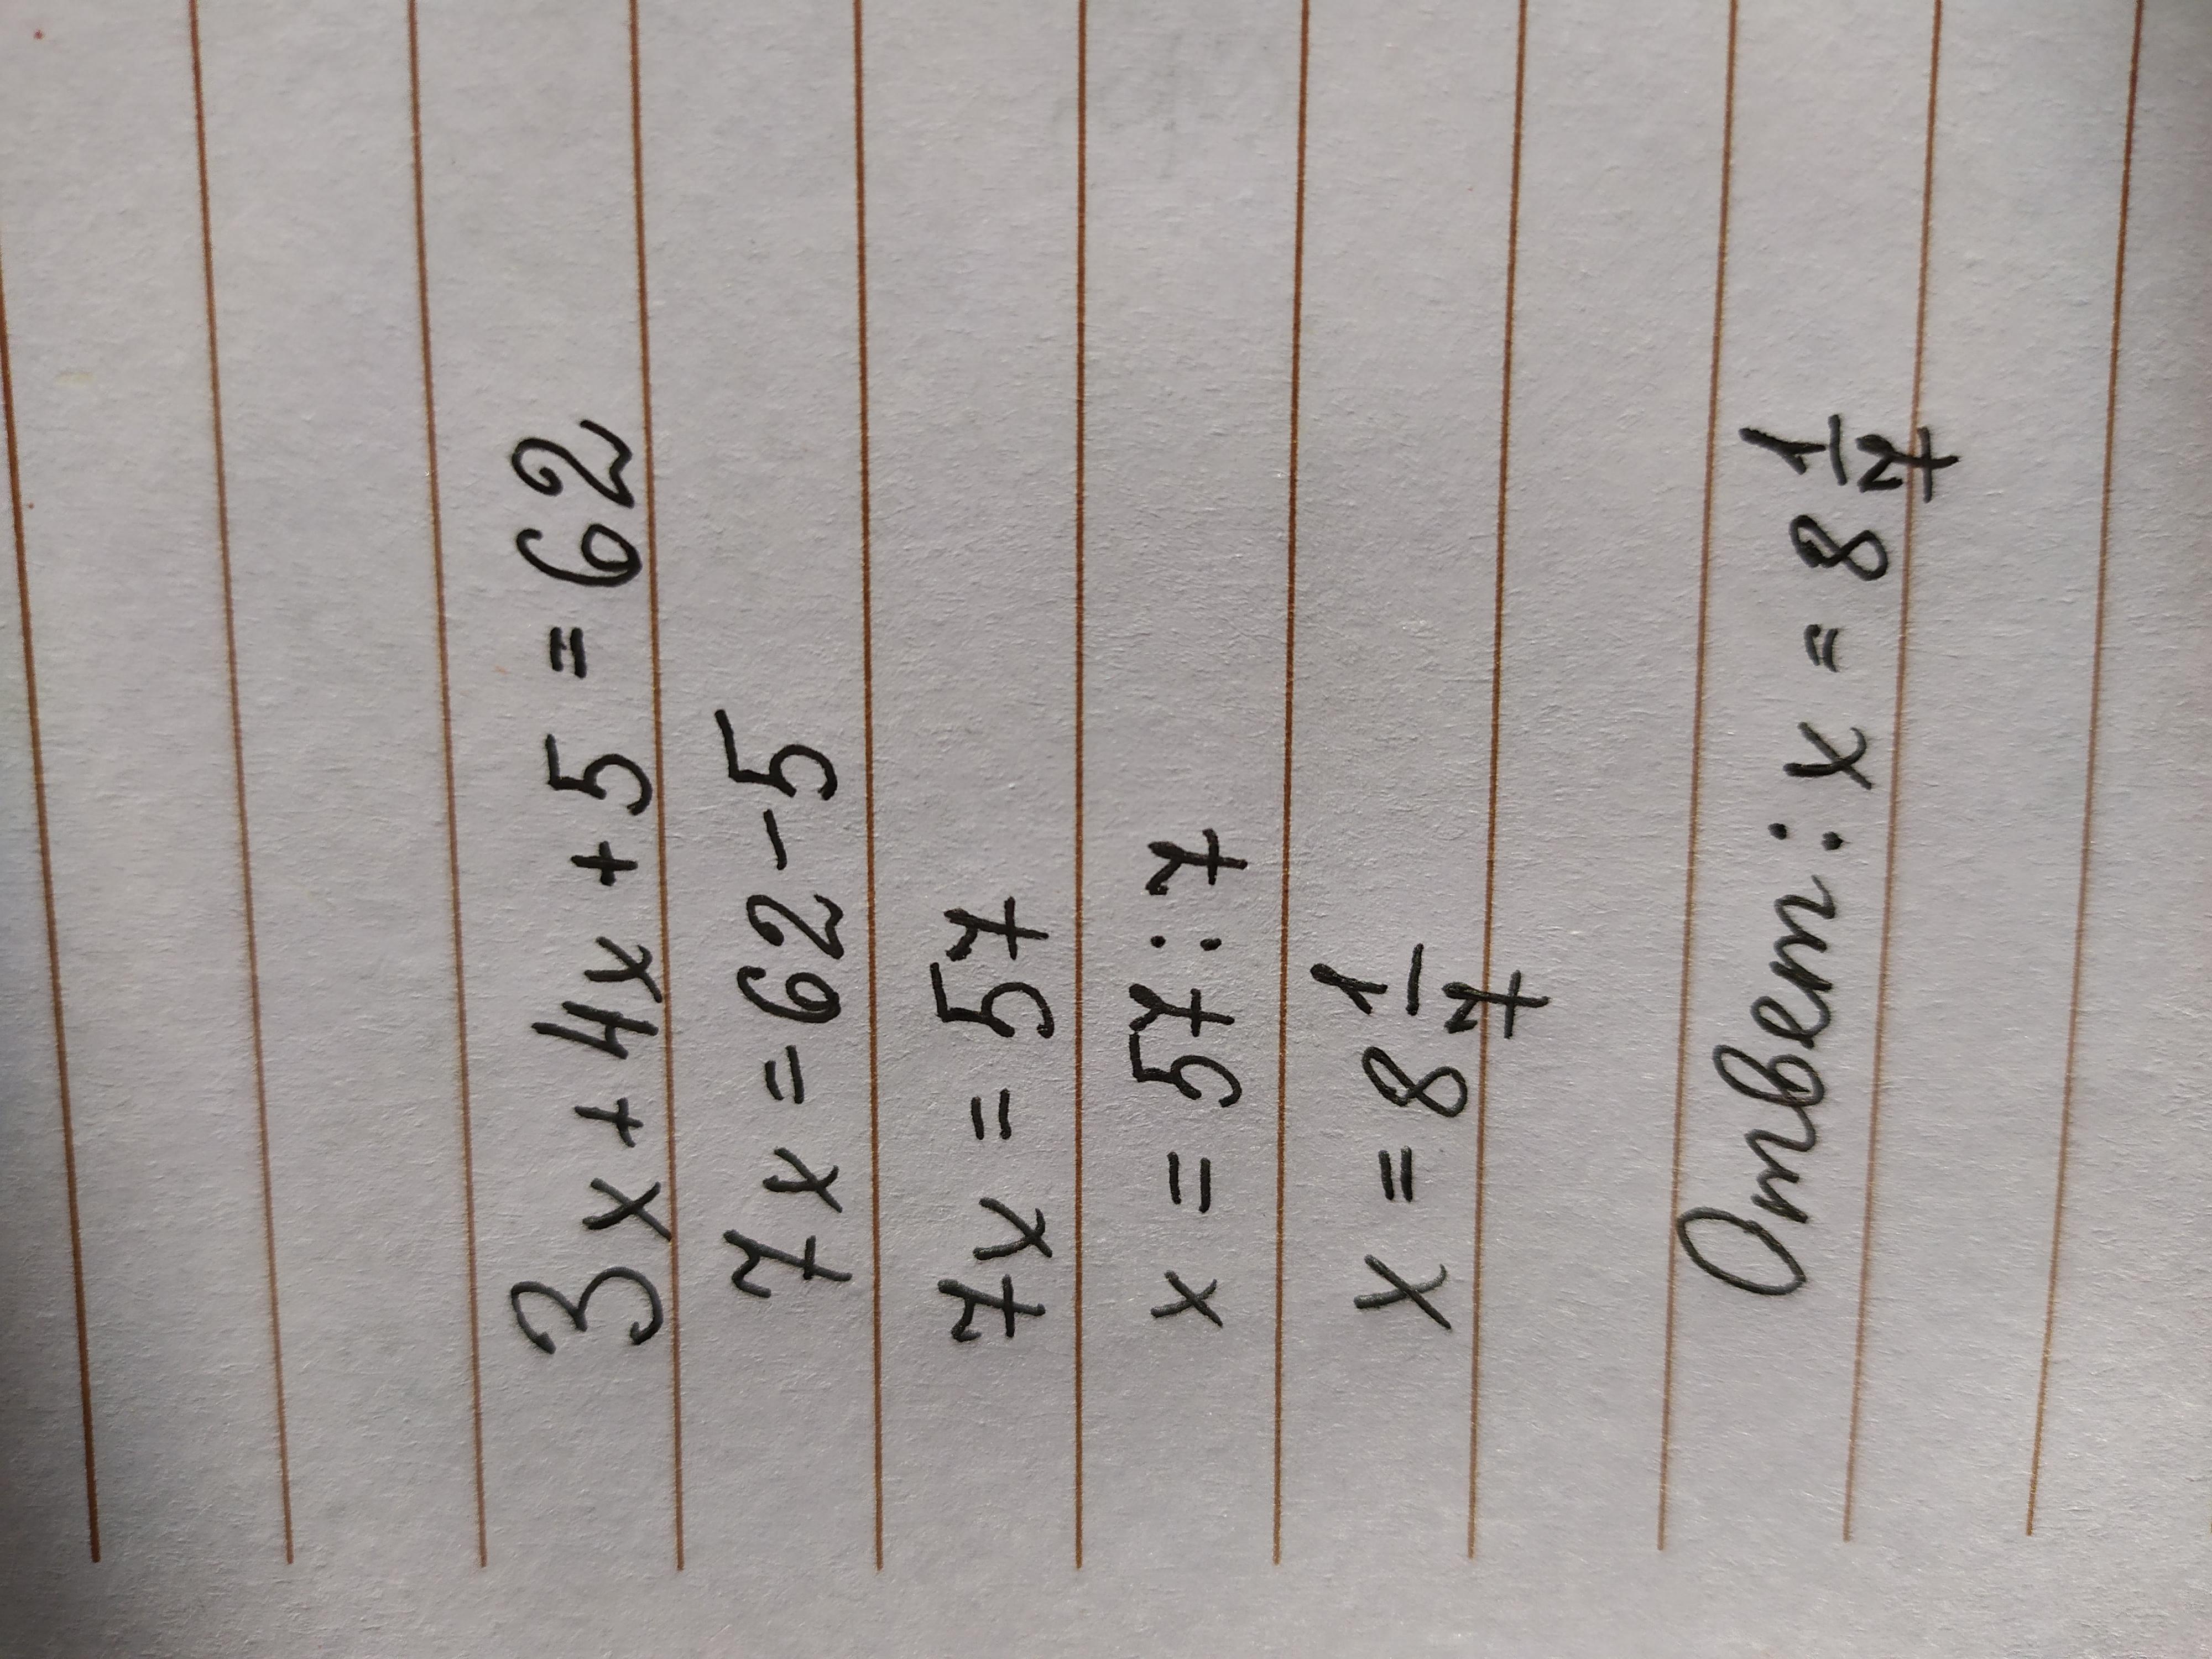 3x + 4x + 5 = 62
7x = 62 - 5
7x = 57
x = 57 : 7
x = 8 1/7
Ответ: x = 8 1/7